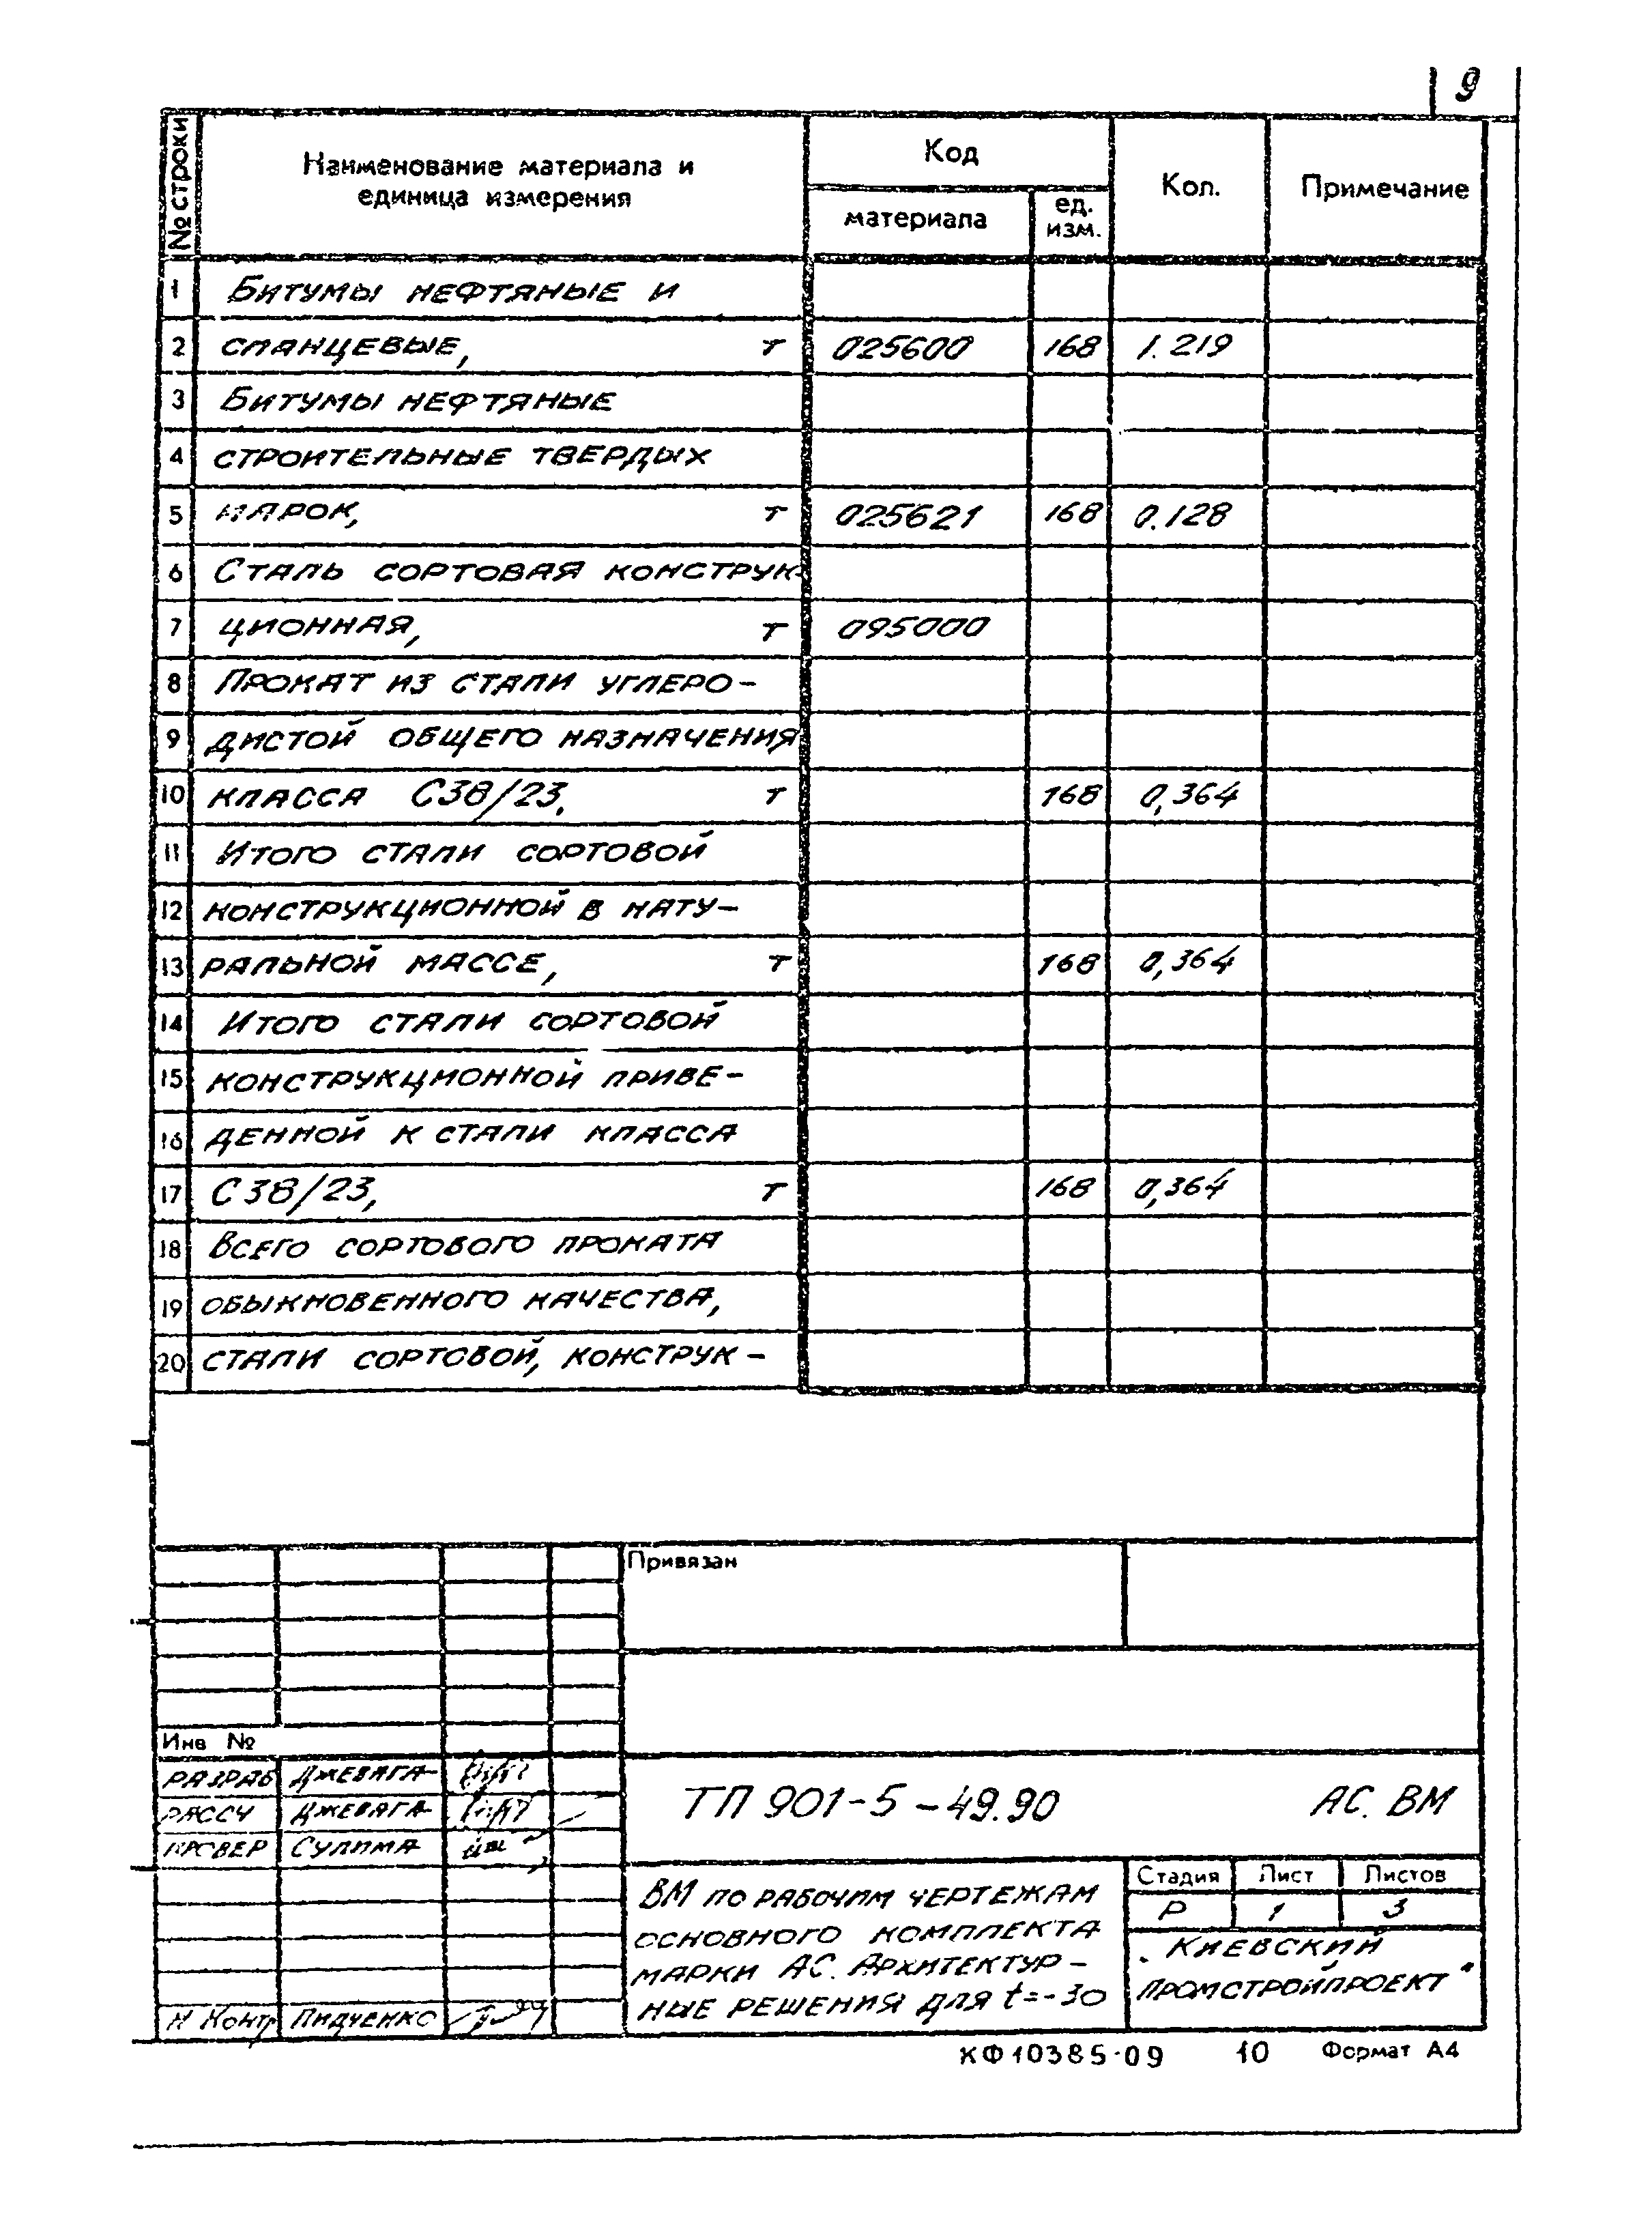 9
№ строки
Наименование материала и
единица измерения
Код
материала
ед.
изм.
Кол.
Примечание
1 Битумы нефтяные и
2 сланцевые, т 025600 168 1.219
3 Битумы нефтяные
4 строительные твердых
5 марок, т 025621 168 0.128
6 Сталь сортовая конструк-
7 ционная, т 095000
8 Прокат из стали углеро-
9 дистой общего назначения
10 класса С38/23, т 168 0,364
11 Итого стали сортовой
12 конструкционной в нату-
13 ральной массе, т 168 0,364
14 Итого стали сортовой
15 конструкционной приве-
16 денной к стали класса
17 С38/23, т 168 0,364
18 Всего сортового проката
19 обыкновенного качества,
20 стали сортовой, конструк-
Привязан
Инв №
Разраб Джевага
Рассч Джевага
Провер Сулима
Н Контр Пидченко
ТП 901-5-49.90 АС. ВМ
ВМ по рабочим чертежам
основного комплекта
марки АС. Архитектур-
ные решения для t=-30
Стадия Лист Листов
Р 1 3
"Киевский
Промстройпроект"
КФ10385-09 10 Формат А4